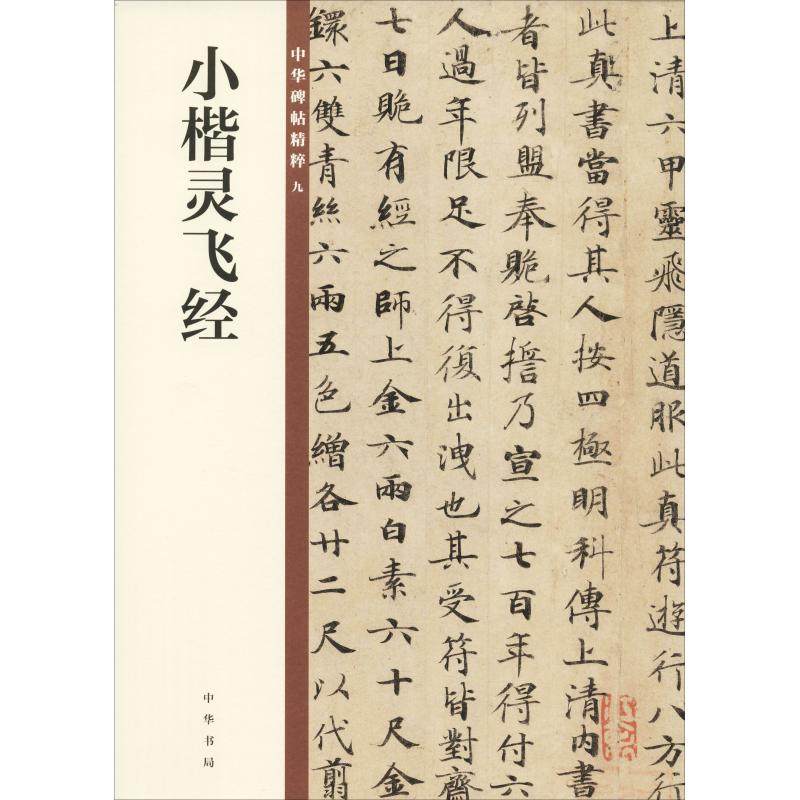 小楷灵飞经
中华书局
中华碑帖精粹 九
上清六甲靈飛隱道服此真符遊行八方行
此真書當得其人按四極明科傳上清内書
者皆列盟奉跪啓擔乃宣之七百年得付六
人過年限足不得復出洩也其受符皆對齋
七日跪有經之師上金六兩白素六十尺金
鐶六雙青絲六兩五色繒各廿二尺以代翦